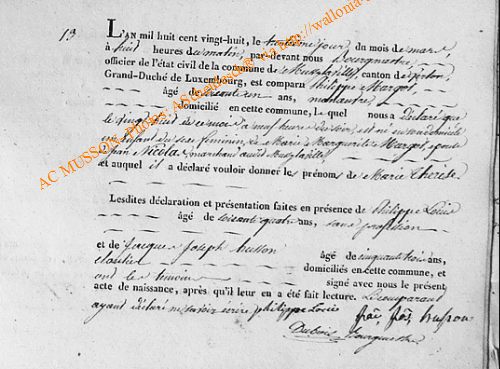 13
L'AN mil huit cent vingt-huit, le trentieme jour du mois de mars
à huit heures du matin par-devant nous Bourgmestre
officier de l'état civil de la commune de canton de
Grand-Duché de Luxembourg, est comparu Philippe Margot,
âgé de soixante un ans, manœuvre,
domicilié en cette commune, Le quel nous a déclaré que
le vingt huit de ce mois à neuf heures du soir, est né en son domicile
un enfant du sexe feminin, de Marie Marguerite Margot, epouse
de jean Nicolas marchand audit
et auquel il a déclaré vouloir donner les prénoms de Marie Thérèse
Lesdites déclaration et présentation faites en présence de Philippe Louis
âgé de soixante quatre ans, sans profession
et de Jacques Joseph husson âgé de cinquante trois ans,
cloutier domiciliés en cette commune, et
ont les temoins signé avec nous le présent
acte de naissance, après qu'il leur en a été fait lecture. Le comparant
ayant déclaré ne savoir écrire philippe Louis husson
Bourgmestre
AC MUSSON - Photos: http://wallonia